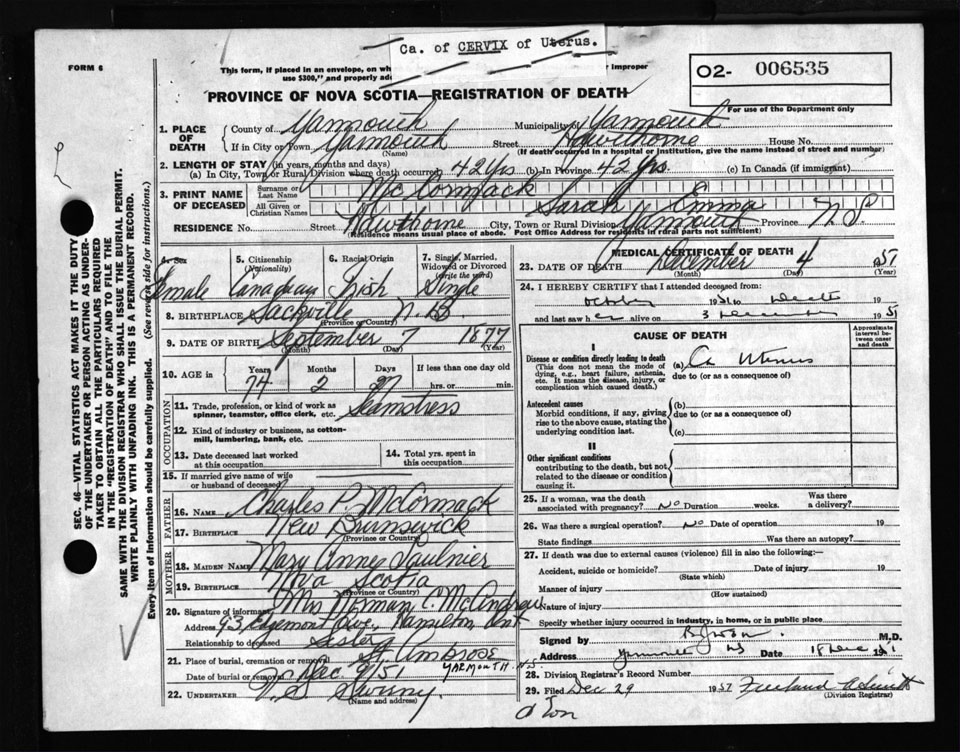 Ca. of CERVIX of Uterus.
FORM 6
This form, if placed in an envelope, on wh
use $300," and properly ad
or improper
02- 006535
PROVINCE OF NOVA SCOTIA—REGISTRATION OF DEATH
For use of the Department only
1. PLACE OF DEATH
County of Yarmouth Municipality of Yarmouth
If in City or Town Yarmouth Street Hawthorne House No.
(Name) (If death occurred in a hospital or institution, give the name instead of street and number)
2. LENGTH OF STAY (in years, months and days)
(a) In City, Town or Rural Division where death occurred 42 Yrs (b) In Province 42 Yrs. (c) In Canada (if immigrant)
3. PRINT NAME OF DECEASED
Surname or Last Name McCormack
All Given or Christian Names Sarah Emma
RESIDENCE No. Street Hawthorne City, Town or Rural Division Yarmouth Province N.S.
(Residence means usual place of abode. Post Office Address for residents in rural parts not sufficient)
4. Sex
Female
5. Citizenship
(Nationality)
Canadian
6. Racial Origin
Irish
7. Single, Married, Widowed or Divorced
(write the word)
Single
8. BIRTHPLACE Sackville N.B.
(Province or Country)
9. DATE OF BIRTH September 7 1877
(Month) (Day) (Year)
10. AGE in
Years Months Days If less than one day
74 2 27 hrs. or min.
OCCUPATION
11. Trade, profession, or kind of work as spinner, teamster, office clerk, etc. Seamstress
12. Kind of industry or business, as cotton-mill, lumbering, bank, etc.
13. Date deceased last worked at this occupation
14. Total yrs. spent in this occupation
15. If married give name of wife or husband of deceased
FATHER
16. Name Charles P. McCormack
17. Birthplace New Brunswick
(Province or Country)
MOTHER
18. Maiden Name Mary Anne Saulnier
19. Birthplace Nova Scotia
(Province or Country)
20. Signature of informant Mrs Norman C. McAndrew
Address 93 Edgemont Ave., Hamilton Ont
Relationship to deceased Sister
21. Place of burial, cremation or removal St Ambrose
YARMOUTH. N.S.
Date of burial or removal Dec. 9/51
22. UNDERTAKER V. S. Sweeny
(Name and address)
MEDICAL CERTIFICATE OF DEATH
23. DATE OF DEATH December 4 1951
(Month) (Day) (Year)
24. I HEREBY CERTIFY that I attended deceased from:
October 1951 to Death 19
and last saw her alive on 3 December 1951
CAUSE OF DEATH
Approximate interval between onset and death
I
Disease or condition directly leading to death
(This does not mean the mode of dying, e.g., heart failure, asthenia, etc. It means the disease, injury, or complication which caused death.)
(a) Ca Uterus
due to (or as a consequence of)
Antecedent causes
Morbid conditions, if any, giving rise to the above cause, stating the underlying condition last.
(b)
due to (or as a consequence of)
(c)
II
Other significant conditions
contributing to the death, but not related to the disease or condition causing it.
25. If a woman, was the death associated with pregnancy? No Duration weeks. Was there a delivery?
26. Was there a surgical operation? No Date of operation 19
State findings Was there an autopsy?
27. If death was due to external causes (violence) fill in also the following:—
Accident, suicide or homicide? Date of injury 19
(State which)
Manner of injury
(How sustained)
Nature of injury
Specify whether injury occurred in industry, in home, or in public place
Signed by M.D.
Address Yarmouth NS Date 18 Dec 1951
28. Division Registrar's Record Number
29. Filed Dec 29 1951
(Division Registrar)
SEC. 46—VITAL STATISTICS ACT MAKES IT THE DUTY OF THE UNDERTAKER OR PERSON ACTING AS UNDERTAKER TO OBTAIN ALL THE PARTICULARS REQUIRED IN THE "REGISTRATION OF DEATH" AND TO FILE THE SAME WITH THE DIVISION REGISTRAR WHO SHALL ISSUE THE BURIAL PERMIT.
WRITE PLAINLY WITH UNFADING INK. THIS IS A PERMANENT RECORD.
Every item of information should be carefully supplied. (See reverse side for instructions.)